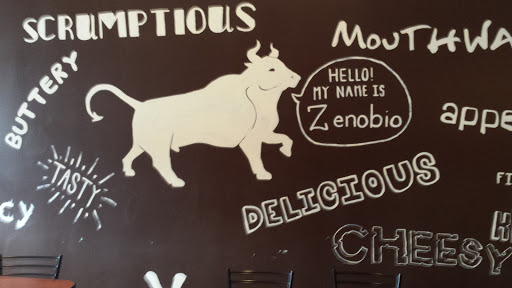 SCRUMPTIOUS
MOUTHWA
BUTTERY
HELLO!
MY NAME IS
Zenobio
appe
TASTY
DELICIOUS
FI
CY
CHEESY